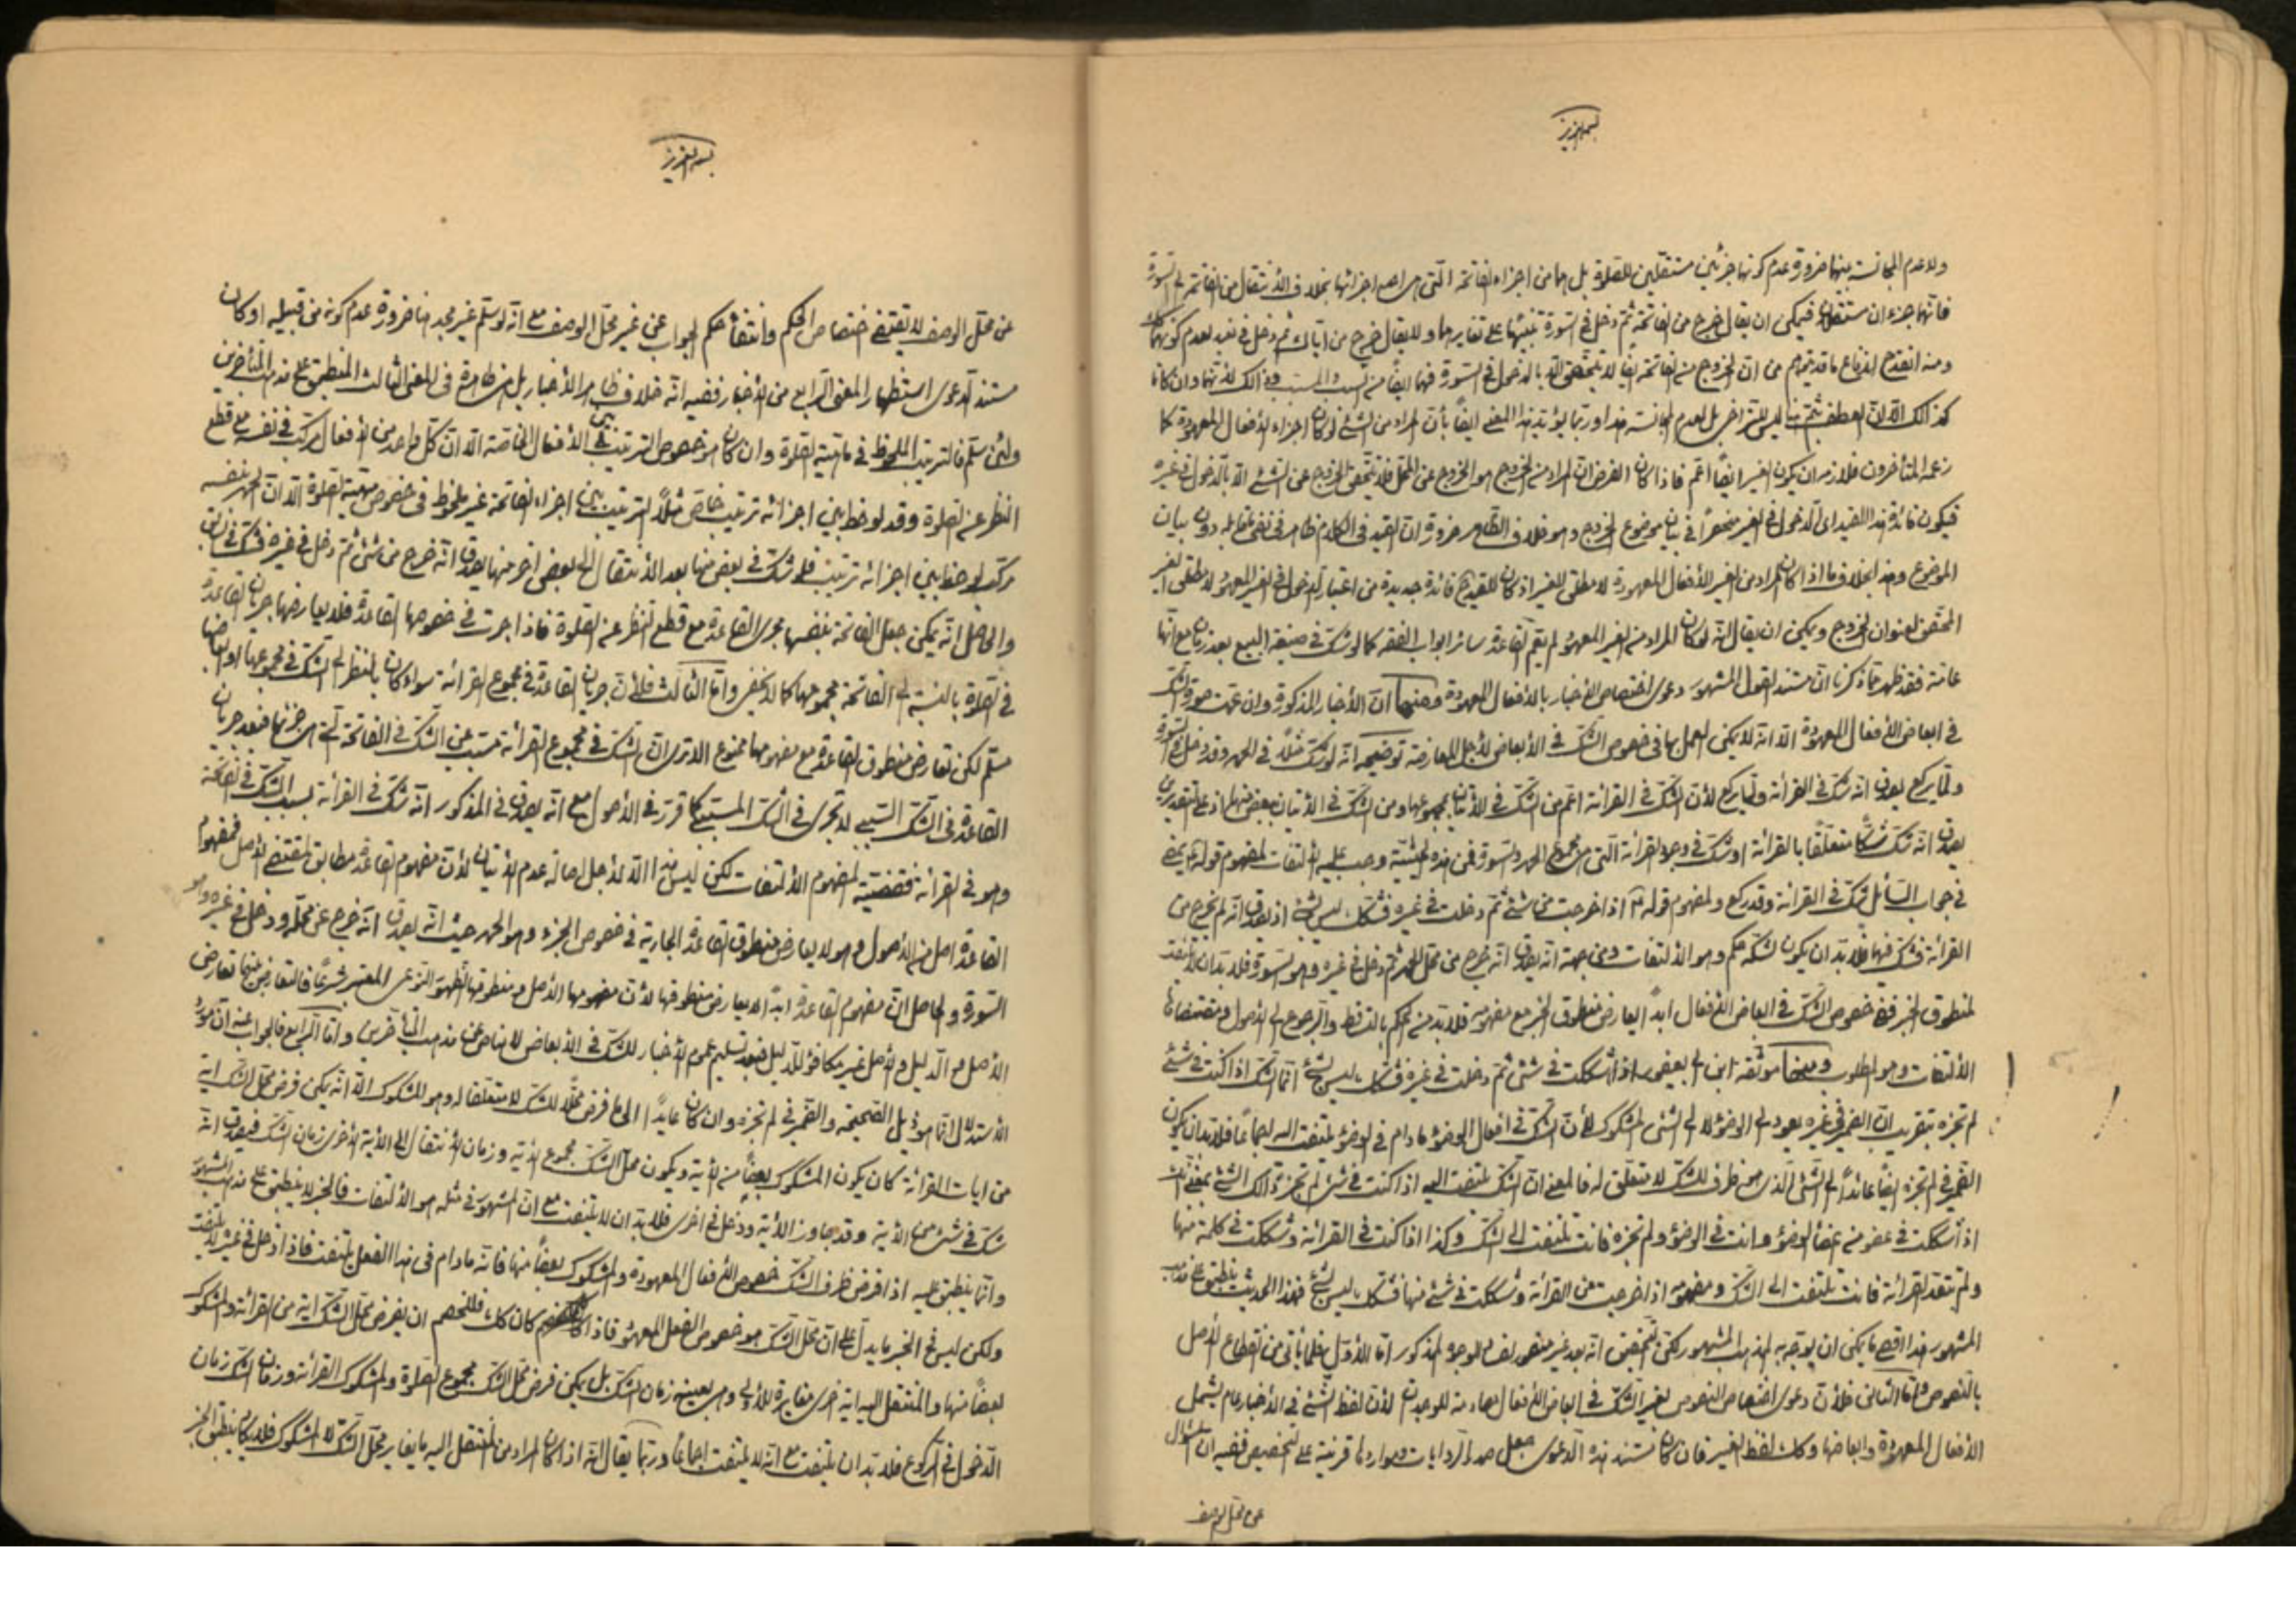 بسمه العزيز
ولا عدم المجانسة بينهما ضرورة عدم كونهما جزئين مستقلين للصلوة بل هما من اجزاء الفاتحة التي هي احد اجزائها بخلاف الانتقال من الفاتحة الى السورة
فانهما جزءان مستقلان فيمكن ان يقال خرج من الفاتحة ثم دخل في السورة تنبيها على تغايرهما ولا يقال خرج من اياك ثم دخل في نعبد لعدم كونهما كك
ومنه انقدح اندفاع ما قد يتوهم من ان الخروج من الفاتحة ايضا لا يتحقق الا بالدخول في السورة فهما ايضا من السبب والمسبب وذلك لانهما وان كانا
كذلك الا ان العطف بثم ليس للتراخي بل لعدم المجانسة هذا وربما يؤيد هذا المعنى ايضا بأن المراد من الشئ لو كان اجزاء الافعال المعهودة كما
زعمه المتأخرون فلازمه ان يكون الغير ايضا اعم فاذا كان الغرض ان المراد من الخروج هو الخروج عن المحل فلا يتحقق الخروج عن الشئ الا بالدخول في غيره
فيكون فائدة هذا القيد اى الدخول في الغير منحصرا في بيان موضوع الخروج وهو خلاف الظاهر ضرورة ان القيد في الكلام ظاهر في نفى مقابله دون بيان
الموضوع وهذا بخلاف ما اذا كان المراد من الغير الافعال المعهودة لا مطلق الغير اذ كان للقيد ح فائدة جديدة من اعتبار الدخول في الغير المعهود لا مطلق الغير
المحقق لعنوان الخروج ويمكن ان يقال انه لو كان المراد منه الغير المعهود لم يقم القاعدة سائر ابواب الفقه كما لو شك في صيغة البيع بعد زمان مع انها
عامة فقد ظهر مما ذكرنا ان مستند القول المشهور دعوى اختصاص الاخبار بالافعال المعهودة ومنها ان الاخبار المذكورة وان عمت صورة الشك
في ابعاض الافعال المعهودة الا انه لا يمكن العمل بها في خصوص الشك في الابعاض لاجل المعارضة توضيحه انه لو شك مثلا في الحمد وقد دخل في السورة
ولما يركع يصدق انه شك في القرائة ولما يركع لان الشك في القرائة اعم من الشك في الاتيان بمجموعها ومن الشك في الاتيان ببعض منها اذ على التقديرين
يصدق انه شك شكا متعلقا بالقرائة او شك في وجود القرائة التى هى مجموع الحمد والسورة فمن هذه الحيثية وجب عليه الالتفات لمفهوم قوله ع يمضى
في جواب السائل شك في القرائة وقد ركع ولمفهوم قوله ع اذا خرجت من شئ ثم دخلت في غيره فشكك ليس بشئ اذ يصدق انه لم يخرج من
القرائة فشك فيها فلا بد ان يكون لشكه حكم وهو الالتفات ومن جهة انه يصدق انه خرج من محل الحمد ثم دخل في غيره وهو السورة فلا بد ان لا يلتفت
لمنطوق الخبر ففى خصوص الشك في ابعاض الافعال ابدا يعارض منطوق الخبر مع مفهومه فلا بد من الحكم بالتساقط والرجوع الى الاصول ومقتضاها
الالتفات وهو المطلوب ومنها موثقة ابن ابى يعفور اذا شككت في شئ ثم دخلت في غيره فشكك ليس بشئ انما الشك اذا كنت في شئ
لم تجزه بتقريب ان الضمير في غيره يعود الى الوضوء لا الى الشئ المشكوك لأن الشك في افعال الوضوء ما دام في الوضوء يلتفت اليه اجماعا فلا بد ان يكون
الضمير في لم تجزه ايضا عائدا الى الشئ الذى هو ظرف للشك لا متعلق له فالمعنى ان الشك يلتفت اليه اذا كنت في شئ لم تجز ذلك الشئ بمعنى انك
اذا شككت في عضو من اعضاء الوضوء وانت في الوضوء ولم تجزه فانت تلتفت الى الشك وكذا اذا كنت في القرائة وشككت في كلمة منها
ولم تنقد القرائة فانت تلتفت الى الشك ومفهومه اذا خرجت من القرائة وشككت في شئ منها فشكك ليس بشئ فهذا الحديث ينطبق على مذهب
المشهور هذا اقصى ما يمكن ان يوجه به لمذهب المشهور لكن التحقيق انه بعد غير منصور لضعف الوجوه المذكور اما الاول فلما يأتى من انقطاع الاصل
بالنصوص واما الثانى فلان دعوى اختصاص النصوص بغير الشك في ابعاض الافعال مصادمة للوجدان لان لفظ الشئ في الاخبار عام يشمل
الافعال المعهودة وابعاضها وكذلك لفظ الغير فان كان مستند هذه الدعوى جعل صدر الروايات ومواردها قرينة على التخصيص ففيه ان السؤال
عن محل الوصف
بسمه العزيز
عن محل الوصف لا يقتضى اختصاص الحكم وانتفاء حكم الجواب عن غير محل الوصف مع انه لو سلم غير مجد هنا ضرورة عدم كونه من قبيله او كان
مستند الدعوى استظهار المعنى الرابع من الاخبار ففيه انه خلاف ظاهر الاخبار بل هى ظاهرة في المعنى الثالث المنطبق على مذهب المتأخرين
ولئن سلم فالترتيب الملحوظ في ماهية الصلوة وان كان هو خصوص الترتيب بين الافعال الخاصة الا ان كل واحد من الافعال مركب في نفسه مع قطع
النظر عن الصلوة وقد لوحظ بين اجزائه ترتيب خاص مثلا الترتيب بين اجزاء الفاتحة غير ملحوظ في خصوص مهية الصلوة الا ان الحمد بنفسه
مركب لوحظ بين اجزائه ترتيب فلو شك في بعض منها بعد الانتقال الى بعض اخر منها يصدق انه خرج من شئ ثم دخل في غيره فشك في الشئ
والحاصل انه يمكن جعل الفاتحة بنفسها مجرى القاعدة مع قطع النظر عن الصلوة فاذا جرت في خصوصها القاعدة فلا يعارضها جريان القاعدة
في الصلوة بالنسبة الى الفاتحة بمجموعها كما لا يخفى واما الثالث فلأن جريان القاعدة في مجموع القرائة سواء كان بالنظر الى الشك في مجموعها او ابعاضها
مسلم لكن تعارض منطوق القاعدة مع مفهومها ممنوع الا ترى ان الشك في مجموع القرائة مسبب عن الشك في الفاتحة التى هى جزئها فبعد جريان
القاعدة في الشك السببى لا تجرى في الشك المسببى كما قرر في الاصول مع انه يصدق في المذكور انه شك في القرائة بسبب الشك في الفاتحة
وهو في القرائة فقضيته المفهوم الالتفات لكن ليس هذا الا لاجل اصالة عدم الاتيان لأن مفهوم القاعدة مطابق لمقتضى الاصل فمفهوم
القاعدة اصل من الاصول وهو لا يعارض منطوق القاعدة الجارية في خصوص الجزء وهو الحمد حيث انه يصدق انه خرج عن محله ودخل في غيره وهو
السورة والحاصل ان مفهوم القاعدة ابدا لا يعارض منطوقها لأن مفهومها الاصل ومنطوقها الظهور النوعى المعتبر شرعا فالتعارض بينهما تعارض
الاصل والدليل والاصل غير مكافؤ للدليل فبعد تسليم عموم الاخبار للشك في الابعاض لا مناص عن مذهب المتأخرين واما الرابع فالجواب عنه ان مورد
الاستدلال انما هو ذيل الصحيحة والضمير في لم تجزه وان كان عايدا الى ما فرض محلا للشك لا متعلقا له وهو المشكوك الا انه يمكن فرض محل الشك اية
من ايات القرائة كان يكون المشكوك بعضا من الاية ويكون محل الشك مجموع الاية وزمان الانتقال الى الاية الاخرى زمان الشك فيصدق انه
شك في شئ من الاية وقد تجاوز الاية ودخل في اخرى فلا بد ان لا يلتفت مع ان المشهور في مثله هو الالتفات فالخبر لا ينطبق على مذهب المشهور
وانما ينطبق عليه اذا فرض ظرف الشك خصوص الافعال المعهودة والمشكوك بعضا منها فانه ما دام في هذا الفعل يلتفت فاذا دخل في غيره لا يلتفت
ولكن ليس في الخبر ما يدل على ان محل الشك هو خصوص الفعل المعهود فاذا كان كك فللخصم ان يفرض محل الشك اية من القرائة والمشكوك
بعضا منها والمنتقل اليه اية اخرى مغايرة للاولى وهى بعينها زمان الشك بل يمكن فرض محل الشك مجموع الصلوة والمشكوك القرائة وزمان الشك زمان
الدخول في الركوع فلا بد ان يلتفت مع انه لا يلتفت اجماعا وربما يقال انه اذا كان المراد من المنتقل اليه ما يغاير محل الشك لا المشكوك فلا يكاد ينطبق الخبر